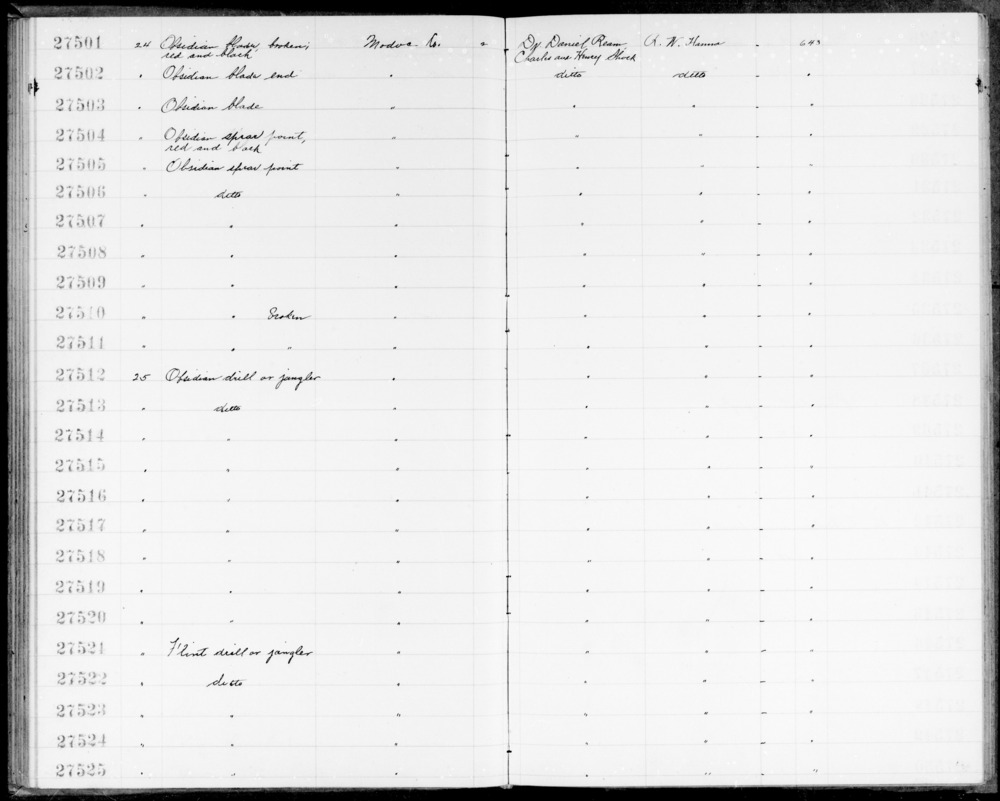 27501 24 Obsidian blade, broken; Modoc Co. " By Daniel Ream A. W. Hanna - 643
red and black Charles and Henry Shock
27502 " Obsidian blade end " ditto ditto - "
27503 " Obsidian blade " " " - "
27504 " Obsidian spear point, " " " - "
red and black
27505 " Obsidian spear point " " " - "
27506 " ditto " " " - "
27507 " " " " " - "
27508 " " " " " - "
27509 " " " " " - "
27510 " " broken " " " - "
27511 " " " " " " - "
27512 25 Obsidian drill or jangler " " " - "
27513 " ditto " " " - "
27514 " " " " " - "
27515 " " " " " - "
27516 " " " " " - "
27517 " " " " " - "
27518 " " " " " - "
27519 " " " " " - "
27520 " " " " " - "
27521 " Flint drill or jangler " " " - "
27522 " ditto " " " - "
27523 " " " " " - "
27524 " " " " " - "
27525 " " " " " - "